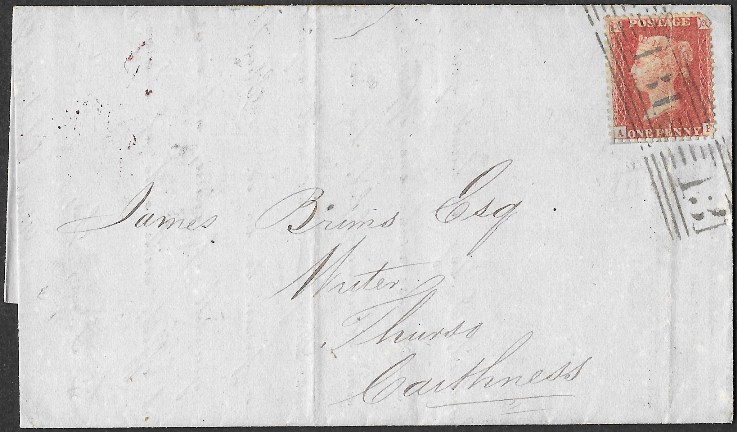 POSTAGE
A
ONE PENNY
131
James Brims Esq
Writer
Thurso
Caithness